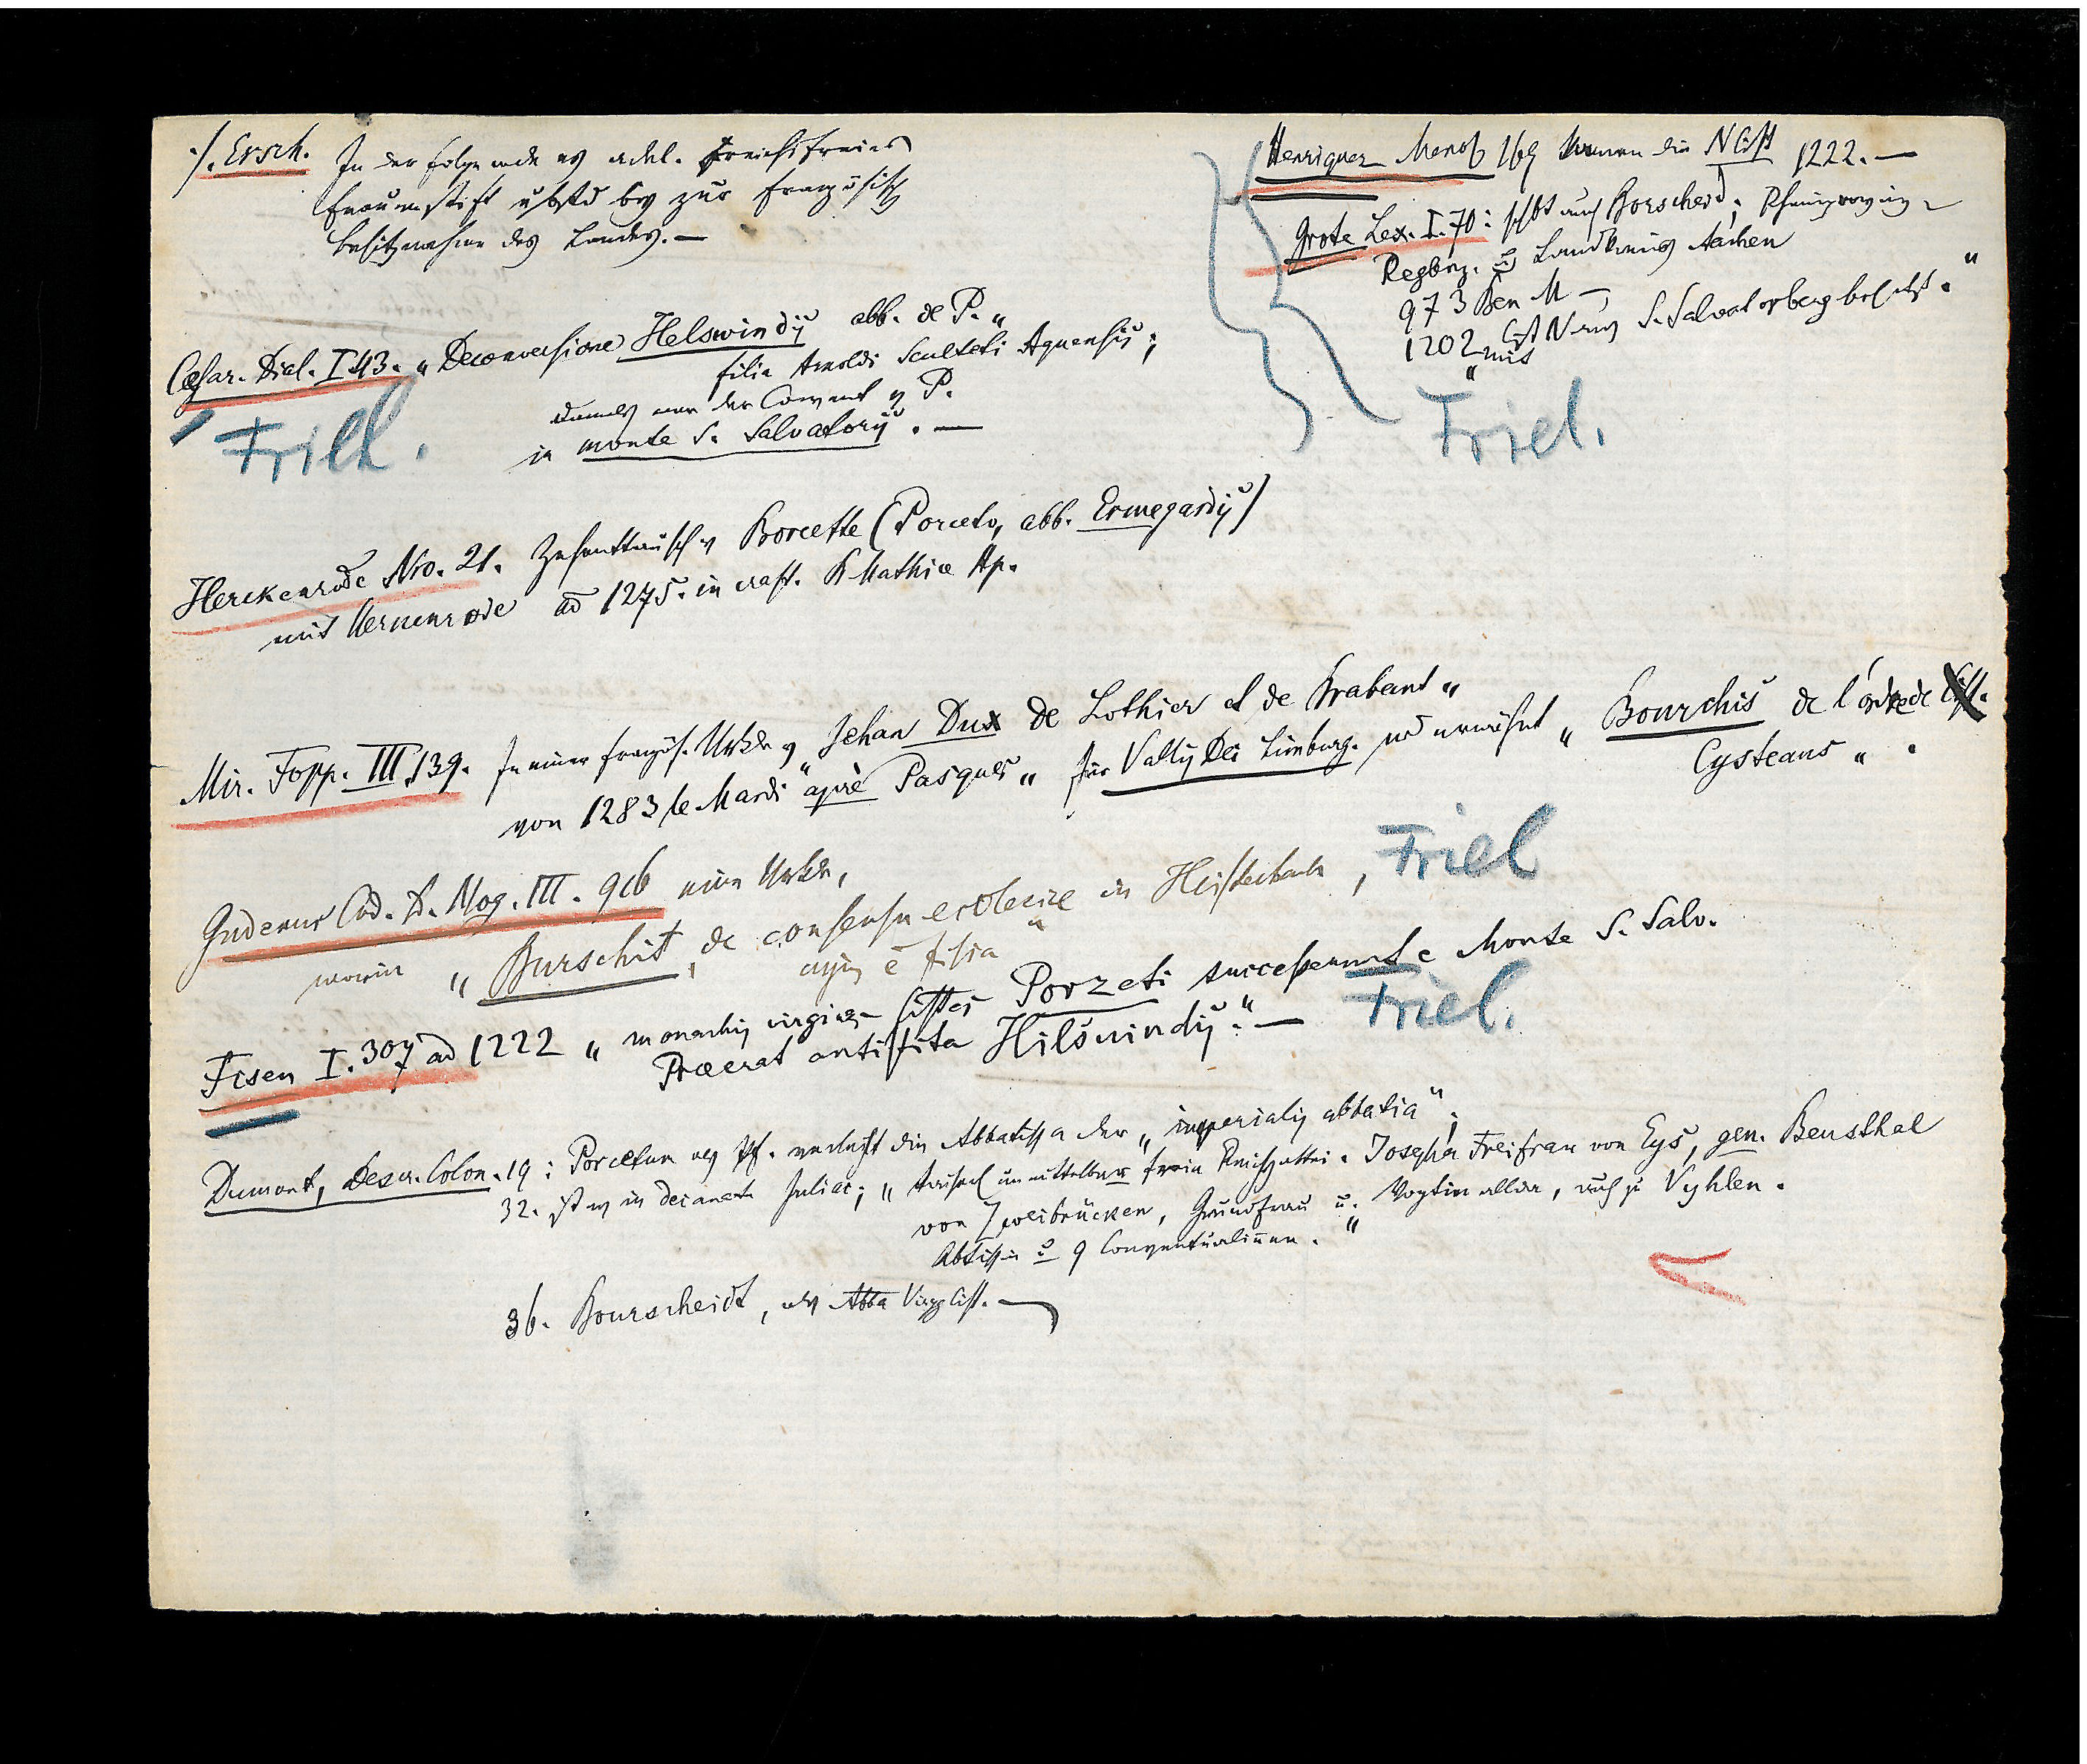 ·/. Ersch. In der Folge wde es adel. freiweltfreies
Frauenstift u. bstd bis zur französisch
Besitznahme des Landes. —
Henriquez Menol 169 kennen die NCist 1222. —
Grote Lex. I. 70: schbt auch Borscheid; Rheinprovinz
Regbez. u. Landkreis Aachen
973 Ben M —
1202 " Cist N aus S. Salvatorberg besetzt. "
mit
Cæsar. Dial. I 43. „ De conversione Helswindis abb. de P. „
filia Arnoldi Sculteti Aquensis;
damals war der Convent v P.
in monte S. Salvatoris. —
Frieh.
Friel.
Herckenrode Nro. 21. Zehenttausch v Borcette (Porceto, abb. Ermegardis)
mit Herckenrode ad 1275. in crast. B Mathiæ Ap.
Mir. Fopp. III 139. In einer französ. Urkde v Jehan Dux de Lothier et de Brabant „
von 1283 le Mardi "apré Pasques „ für Vallis Dei Limburg. wd erwähnt „ Bourchis de l'ordre de
Cysteaus „ .
Gudenus Cod. D. Mog. III. 916 eine Urkde,
worin „ Burschit, de consensu ecclesiæ in Heisterbach, Friel
cujus ē filia "
Fisen I. 307 ad 1222 „ monachis virgines Cisters Porzeti successerunt e Monte S. Salv.
Præerat antistita Hilswindis." — Friel.
Dumont, Descr. Colon. 19: Porcetum als Pf. verleiht die Abbatissa der „ imperialis abbatia";
32. ist es in decanatu Juliac; „ Kaiserl unmittelbar freie Reichsabtei. Josepha Freifrau von Eys, gen. Beusthal
von Zweibrücken, Grundfrau u. Vogtin allda, auch zu Vyhlen.
Abtissin u 9 Conventualinnen. "
36. Bourscheidt, als Abba Virgg Cist. —